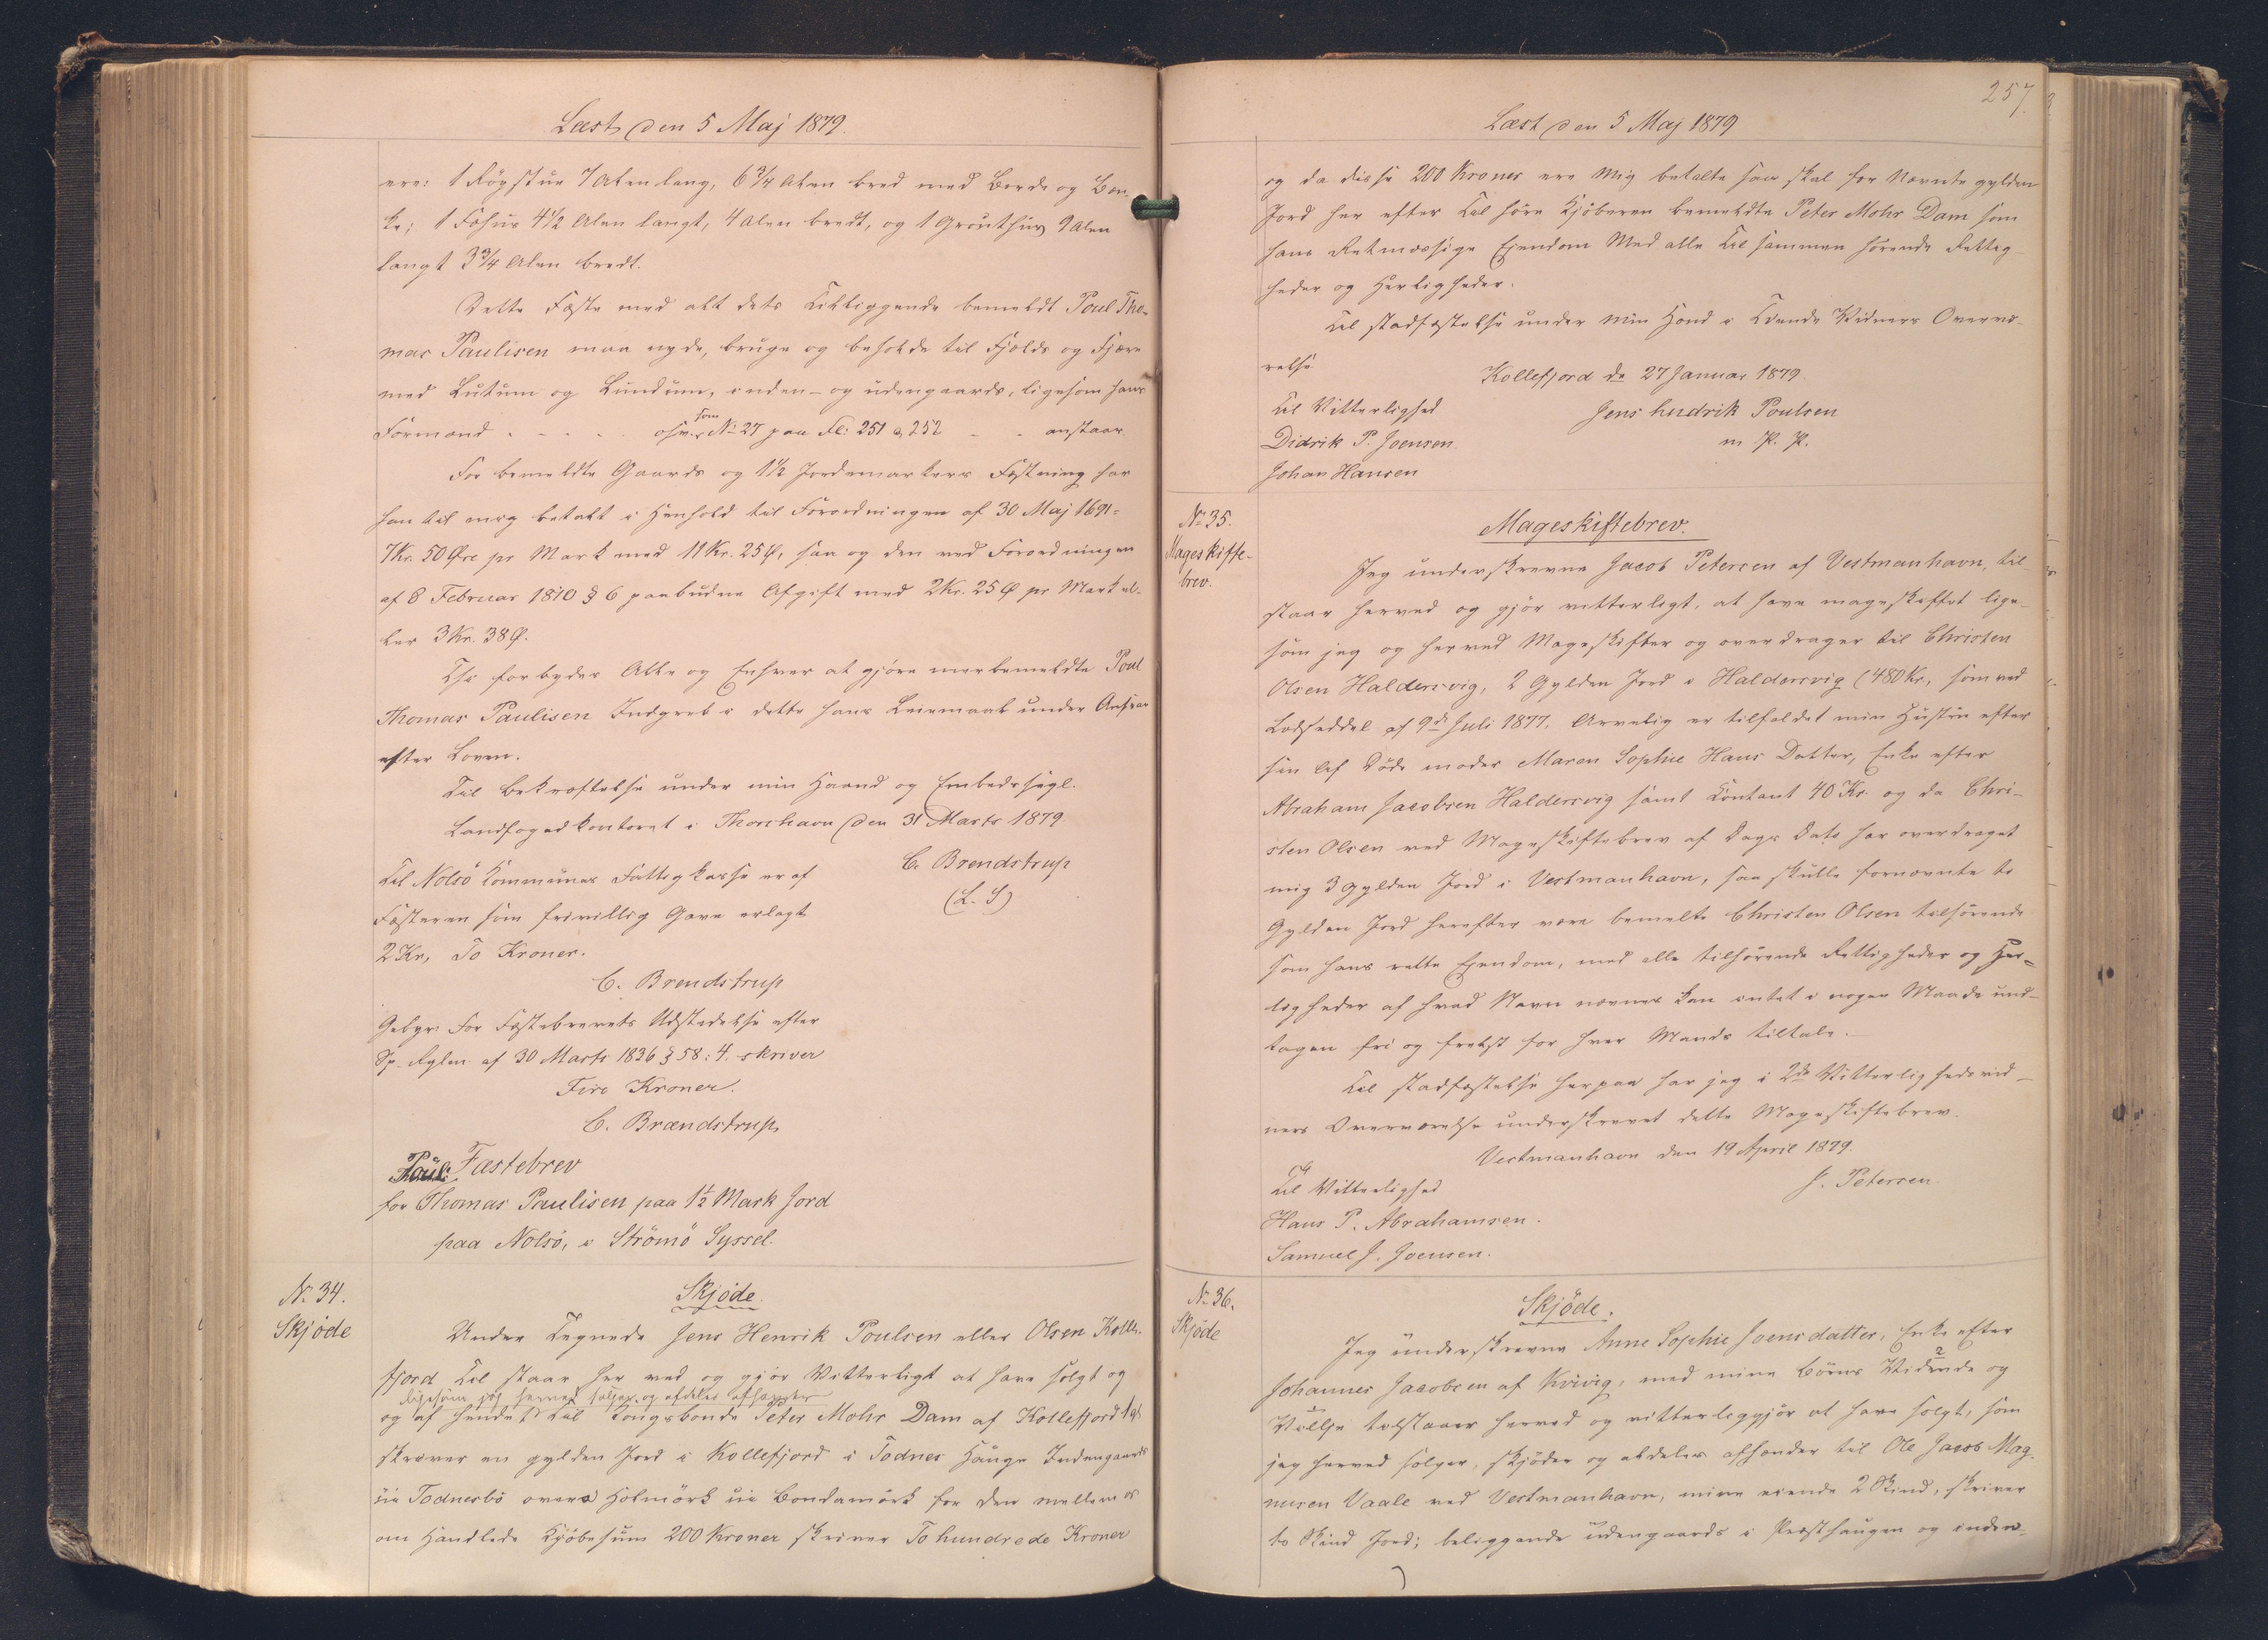 Læst den 5 Maj 1879.
ere: 1 Røgstue 7 Alen lang, 6 3/4 Alen bred med Borde og Bæn-
ke; 1 Fæhus 4 1/2 Alen langt, 4 Alen bredt, og 1 Grouthuus 9 Alen
langt 3 3/4 Alen bredt.
Dette Fæste med alt dets Tilliggende bemeldt Poul Tho-
mas Paulisen maa nyde, bruge og beholde til Fjelds og Fjære
med Lutum og Lundum, inden- og udengaards, ligesom hans
Formand . - - - . osv. som No 27 paa Fl: 251 & 252 - - anstaar.
For bemeldte Gaards og 1 1/2 Jordemarkers Fæstning har
han til mig betalt i Henhold til Forordningen af 30 Maj 1691 =
7 Kr. 50 Øre pr Mark med 11 Kr. 25 Ø, saa og den ved Forordningen
af 8 Februar 1810 § 6 paabudne Afgift med 2 Kr. 25 Ø pr Mark el-
ler 3 Kr. 38 Ø.
Thi forbydes Alle og Enhver at gjøre merbemeldte Poul
Thomas Paulisen Indgreb i dette hans Leiemaal under Ansvar
efter Loven.
Til Bekræftelse under min Haand og Embedssegl.
Landfogedkontoret i Thorshavn den 31 Marts 1879.
C. Brendstrup
(L. S)
Til Nolsø Kommunes Fattigkasse er af
Fæsteren som frivillig Gave erlagt
2 Kr, To Kroner.
C. Brendstrup
Gebyr: For Fæstebrevets Udstedelse efter
Sp. Reglm. af 30 Marts 1836 § 58: 4. skriver
Fire Kroner.
C. Brændstrup
Fæstebrev
for Thomas Paulisen paa 1 1/2 Mark Jord
paa Nolsö, i Strömö Syssel.
No 34.
Skjöde
Skjöde.
Under Tegnede Jens Henrik Poulsen eller Olsen Kolle-
fjord Til staar her ved og gjör Vitterligt at have solgt og
ligesom jeg herved sælger og afdeles afhænder
og af hendet Til Kongsbonde Peter Mohr Dam af Kollefjord 1 gl
skriver en gylden Jord i Kollefjord i Todnes Hauge Indengaards
üia Todnesbö overa Holmörk üia Bondamörk for den mellem os
om Handlede Kjöbesum 200 Kroner skriver To hundrede Kroner
257.
Læst den 5 Maj 1879
og da disse 200 Kroner ere Mig betalte saa skal for Nævnte gylden
Jord her efter Til höre Kjöberen bemeldte Peter Mohr Dam som
hans Retmæssige Ejendom Med alle Til sammen hörende Rettig-
heder og Herligheder.
Til stadfæstelse under min Haand i Tvende Vidners Overvæ-
relse.
Kollefjord de 27 Januar 1879.
Til Vitterlighed
Jens hendrik Poulsen
m P. P.
Didrik P. Joensen
Johan Hansen
No 35.
Mageskifte-
brev.
Mageskiftebrev.
Jeg underskrevne Jacob Petersen af Vestmanhavn, til-
staar herved og gjör vitterligt, at have mageskiftet lige-
som jeg og herved Mageskifter og overdrager til Christen
Olsen Haldersvig, 2 Gylden Jord i Haldersvig (480 Kr, som ved
Lodseddel af 9de Juli 1877, Arvelig er tilfaldet min Hustru efter
sin Af Døde moder Maren Sophie Hans Datter, Enke efter
Abraham Jacobsen Haldersvig samt Kontant 40 Kr. og da Chri-
sten Olsen ved Mageskiftebrev af Dags Dato har overdraget
mig 3 gylden Jord i Vestmanhavn, saa skulle fornævnte to
Gylden Jord herefter være bemelte Christen Olsen tilhörende
som hans rette Ejendom, med alle tilhörende Rettigheder og Her-
ligheder af hvad Navn nævnes kan intet i nogen Maade und-
tagen fri og frelst for hver Mands tiltale.-
Til stadfæstelse herpaa har jeg i 2de Vitterlighedsvid-
ners Overværelse underskrevet dette Mageskiftebrev.
Vestmanhavn den 19 April 1879.
Til Vitterlighed
J. Petersen.
Hans P. Abrahamsen.
Samuel J. Joensen.
No 36.
Skjöde
Skjöde.
Jeg underskrevne Anne Sophie Joensdatter, Enke efter
Johannes Jacobsen af Kvivig, med mine Börns Vidende og
Villje tilstaaer herved og vitterliggjör at have solgt, som
jeg herved sælger, skjöder og aldeles afhænder til Ole Jacob Mag-
nusen Vaale ved Vestmanhavn, mine eiende 2 Skind, skriver
to Skind Jord; beliggende udengaards i Præsthaugen og inden-